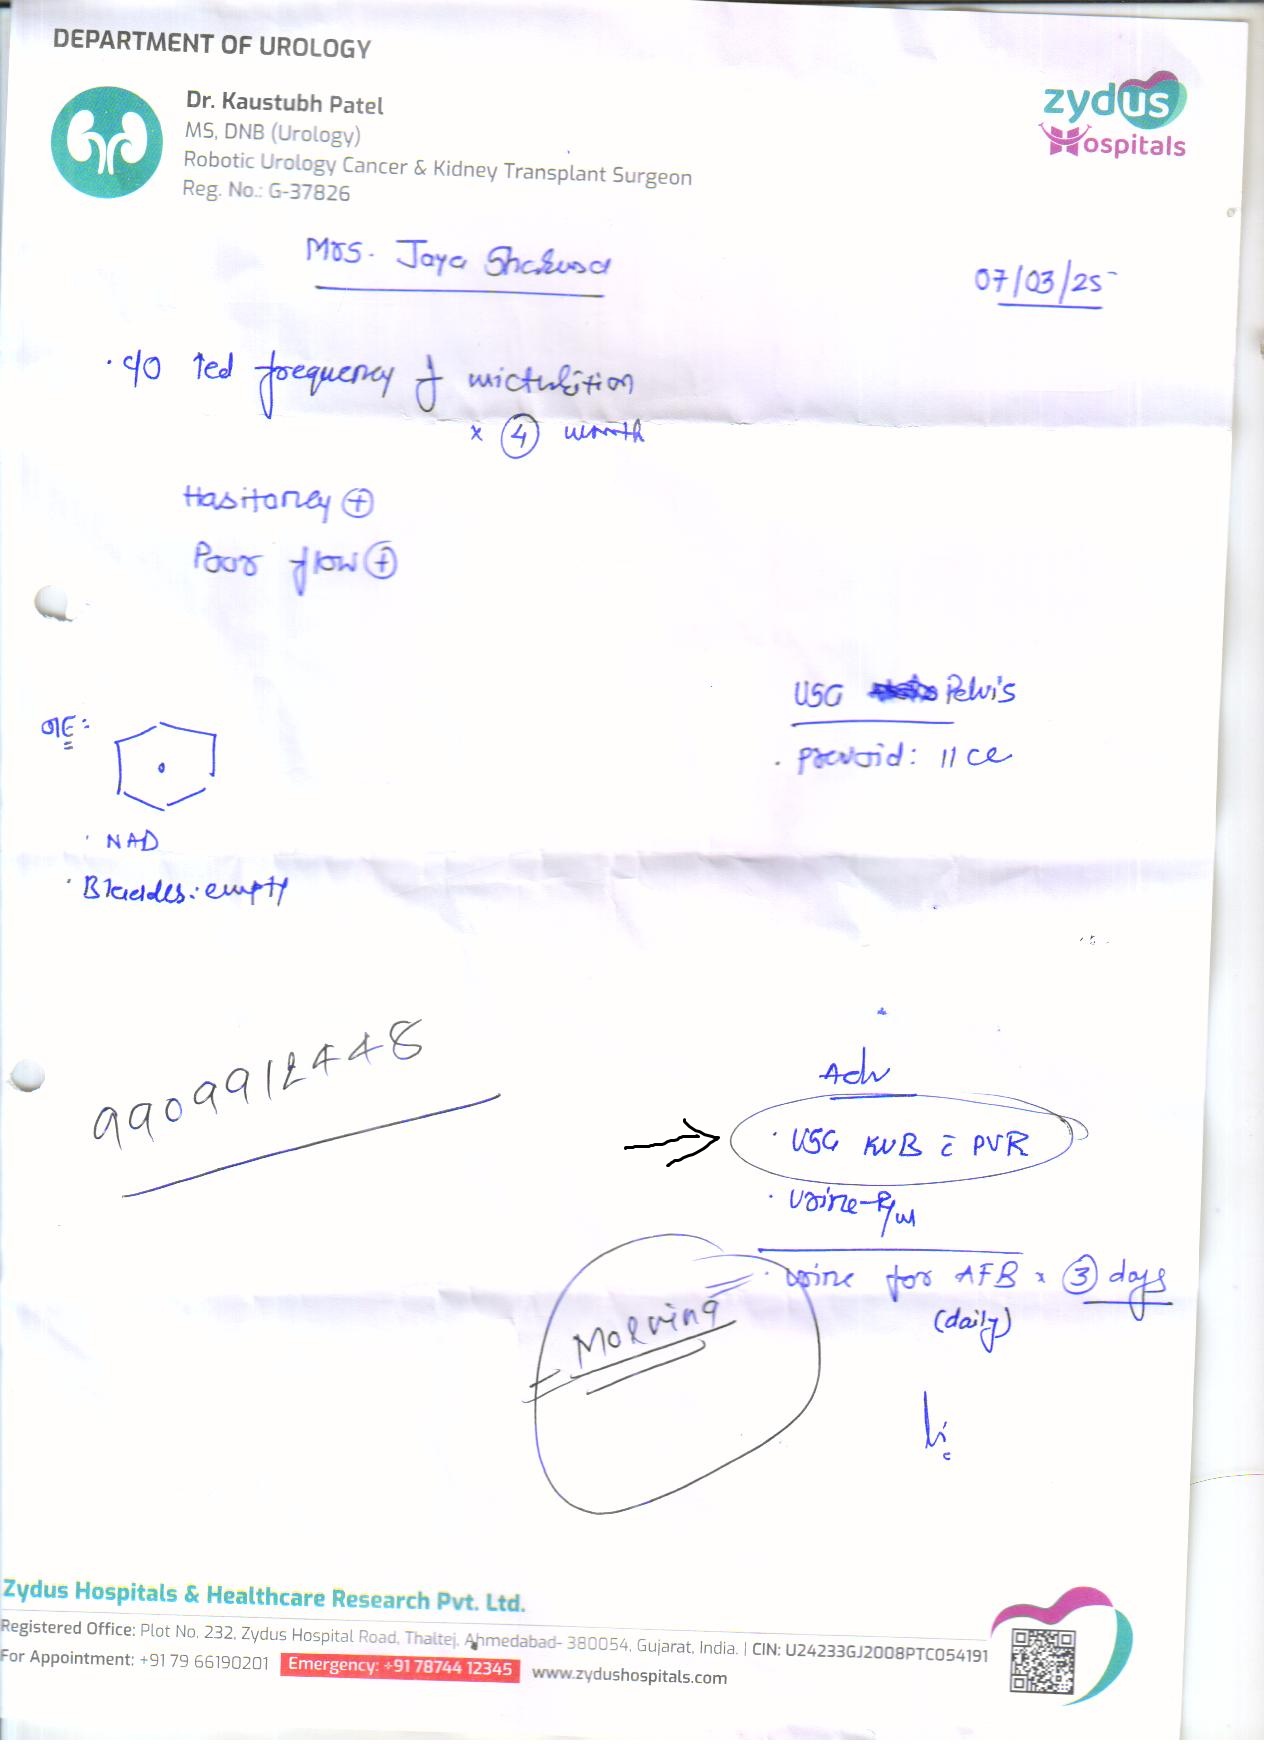 DEPARTMENT OF UROLOGY
Dr. Kaustubh Patel
MS, DNB (Urology)
Robotic Urology Cancer & Kidney Transplant Surgeon
Reg. No.: G-37826
zydus
Hospitals
Mrs. Jaya
07/03/25
. c/o ↑ed frequency of micturition
x 4 month
Hasitancy +
Poor flow +
USG Pelvis
. prevoid: 11 cc
O/E:
. NAD
. Bladder: empty
9909912448
Adv
. USG KUB c̄ PVR
. Urine R/M
. Urine for AFB x 3 days
(daily)
Morning
Zydus Hospitals & Healthcare Research Pvt. Ltd.
Registered Office: Plot No. 232, Zydus Hospital Road, Thaltej, Ahmedabad- 380054, Gujarat, India. | CIN: U24233GJ2008PTC054191
For Appointment: +91 79 66190201 Emergency: +91 78744 12345 www.zydushospitals.com